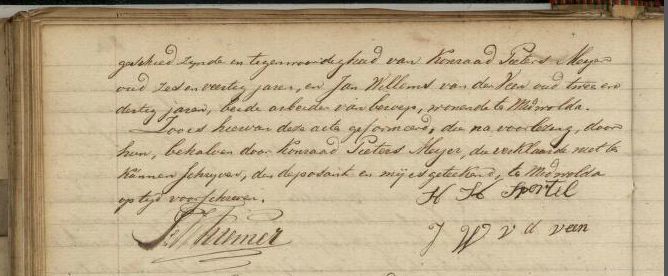 geschied zynde in tegenwoordigheid van Konraad Pieters Meyer
oud zes en veertig jaren, en Jan Willems van der Veen oud twee en
dertig jaren, beide arbeider van beroep, wonende te Midwolda.
Zoo is hiervan deze acte geformeerd, die na voorlezing, door
hun, behalven door Konraad Pieters Meyer, die verklaarde niet te
kunnen schryven, den deposant en my is geteekend, te Midwolda
op tyd voorschreven.
H K Sportel
J W v d veen